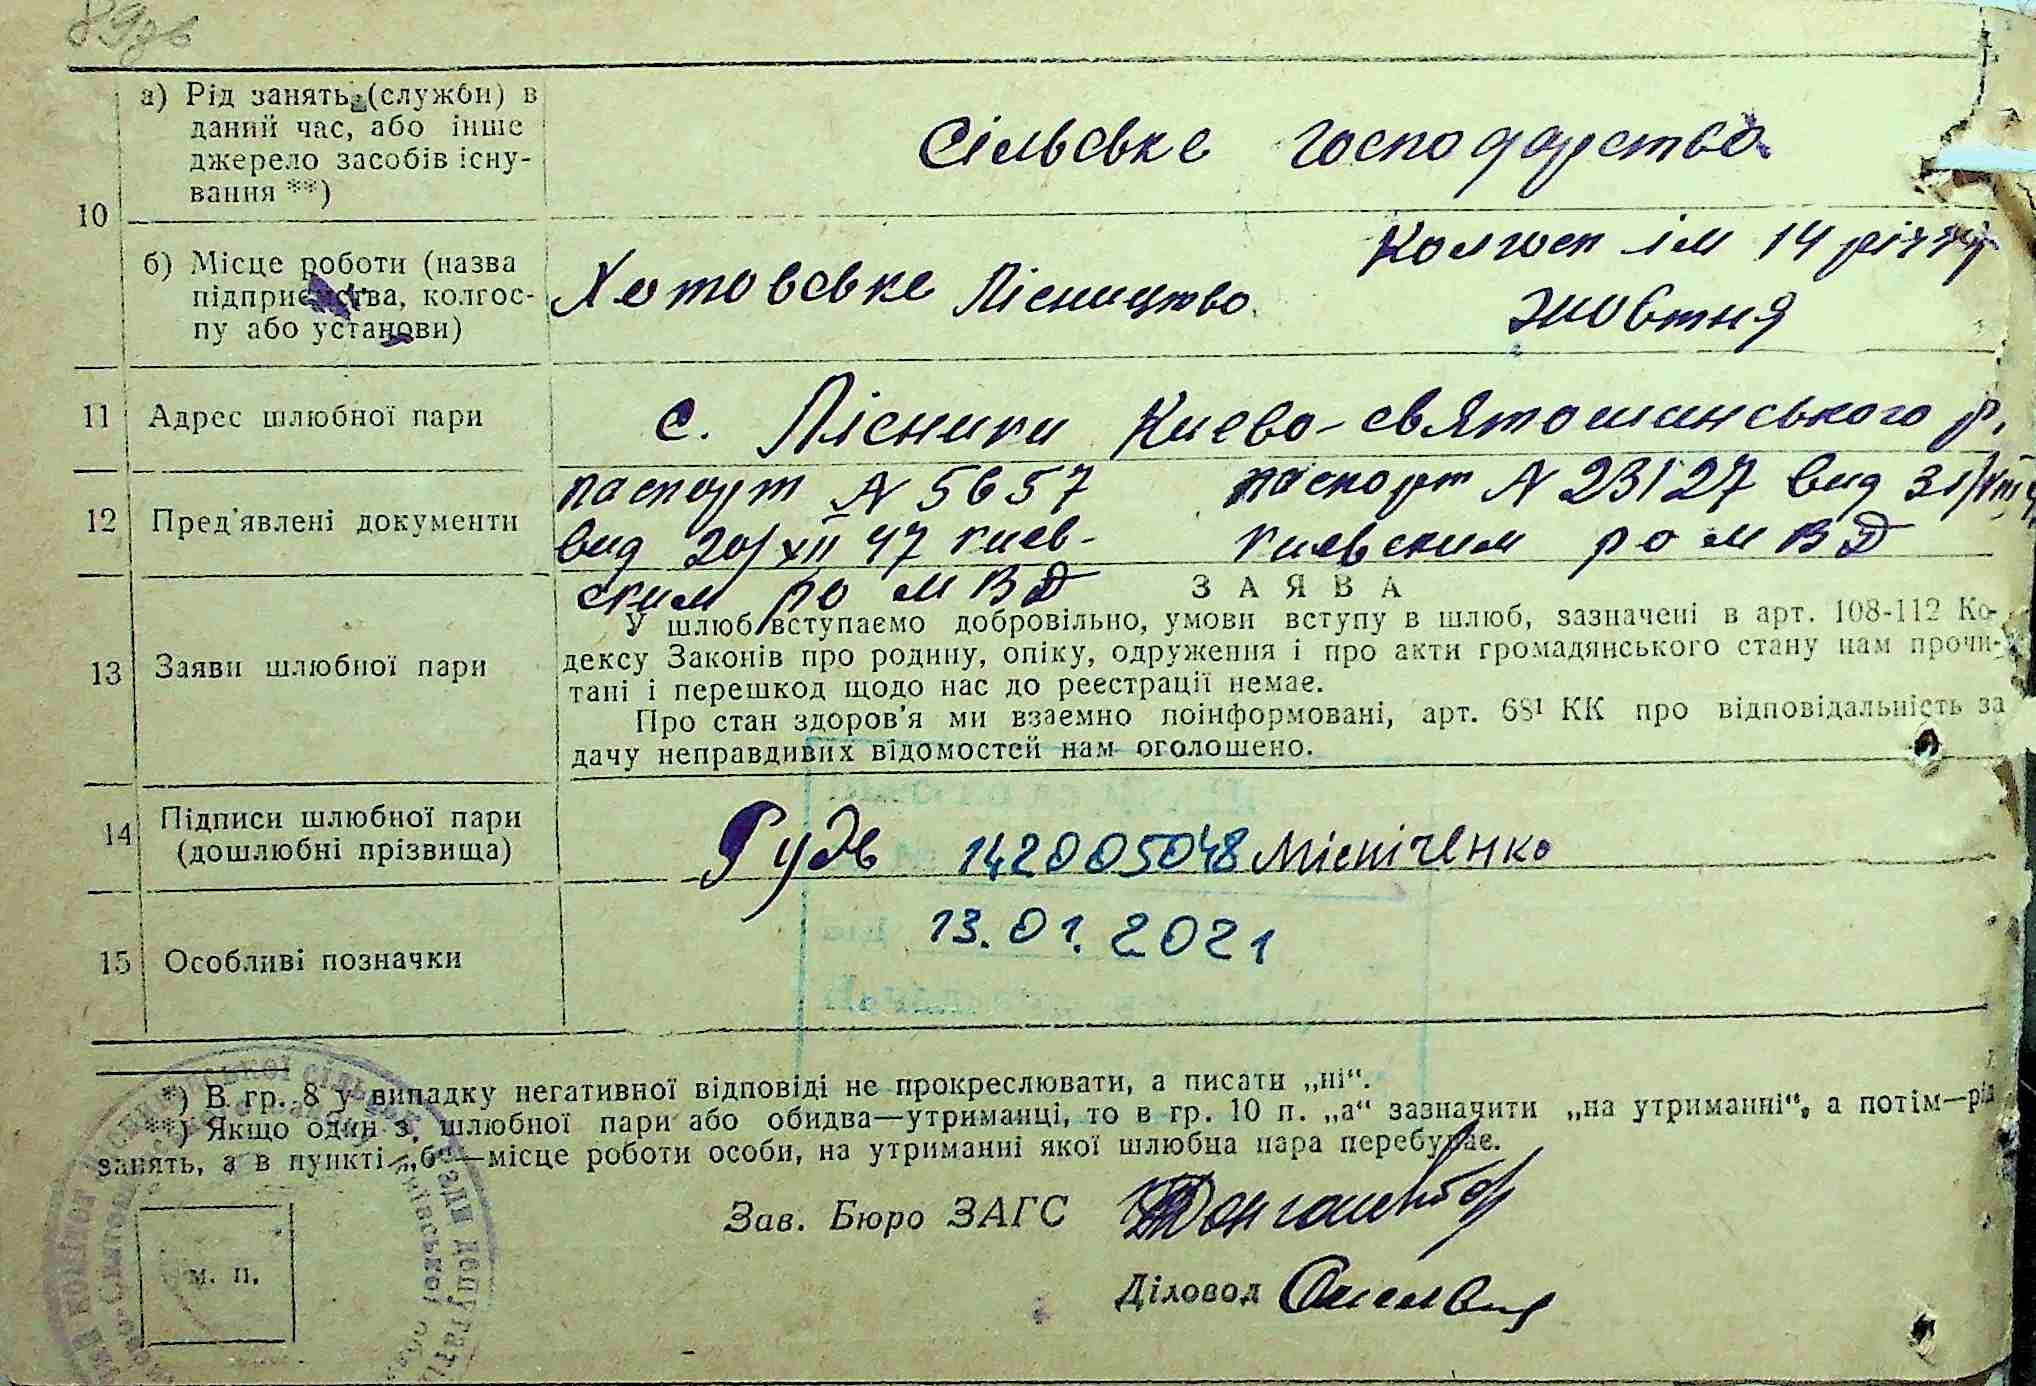 89зв
а) Рід занять (служби) в
даний час, або інше
джерело засобів існу-
вання **)
Сільське господарство
10
б) Місце роботи (назва
підприємства, колгос-
пу або установи)
Хотовське Лісництво
Колгосп ім 14 річчя
Жовтня
11 Адрес шлюбної пари
с. Лісники Києво-Святошинського р.
12 Пред'явлені документи
паспорт N 5657
вид 20/XII 47 Киев-
ским РО МВД
паспорт N 23127 вид 31/VIII
Киевским РО МВД
13 Заяви шлюбної пари
ЗАЯВА
У шлюб вступаємо добровільно, умови вступу в шлюб, зазначені в арт. 108-112 Ко-
дексу Законів про родину, опіку, одруження і про акти громадянського стану нам прочи-
тані і перешкод щодо нас до реєстрації немає.
Про стан здоров'я ми взаємно поінформовані, арт. 68¹ КК про відповідальність за
дачу неправдивих відомостей нам оголошено.
14 Підписи шлюбної пари
(дошлюбні прізвища)
Рудь 142005048 Міспіченко
13.01.2021
15 Особливі позначки
*) В гр. 8 у випадку негативної відповіді не прокреслювати, а писати „ні“.
**) Якщо один з шлюбної пари або обидва—утриманці, то в гр. 10 п. „а“ зазначити „на утриманні“, а потім—рід
занять, а в пункті „б“—місце роботи особи, на утриманні якої шлюбна пара перебуває.
Зав. Бюро ЗАГС
Діловод
м. п.